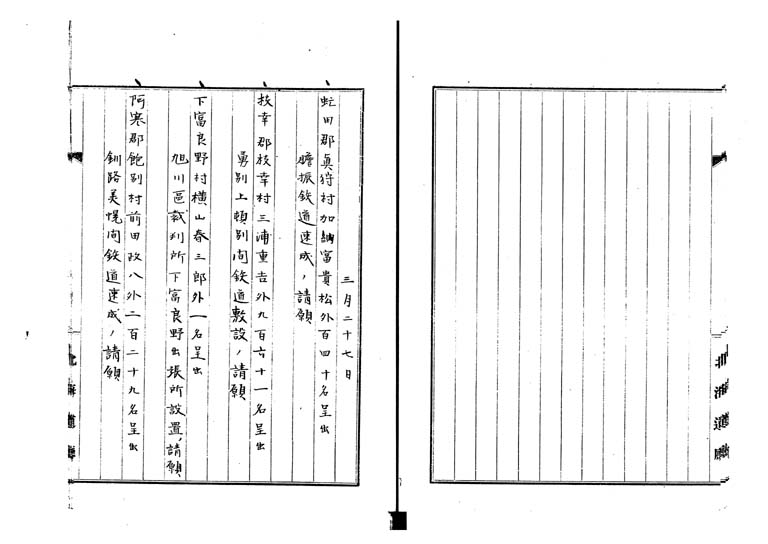 三月二十七日
虻田郡眞狩村加納富貴松外百四十名呈出
膽振鉄道速成ノ請願
枝幸郡枝幸村三浦重吉外九百六十一名呈出
勇別上頓別間鉄道敷設ノ請願
下富良野村横山春三郎外一名呈出
旭川區裁判所下富良野出張所設置ノ請願
阿寒郡飽別村前田政八外二百二十九名呈出
釧路美幌間鉄道速成ノ請願
北海道廳
北海道廳